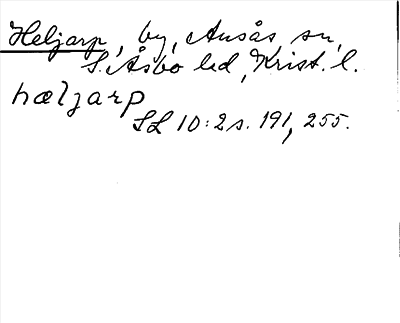 Heljarp, by, Ausås sn,
S. Åsbo hd, Krist. l.
hæljarp
SL 10:2 s. 191, 255.